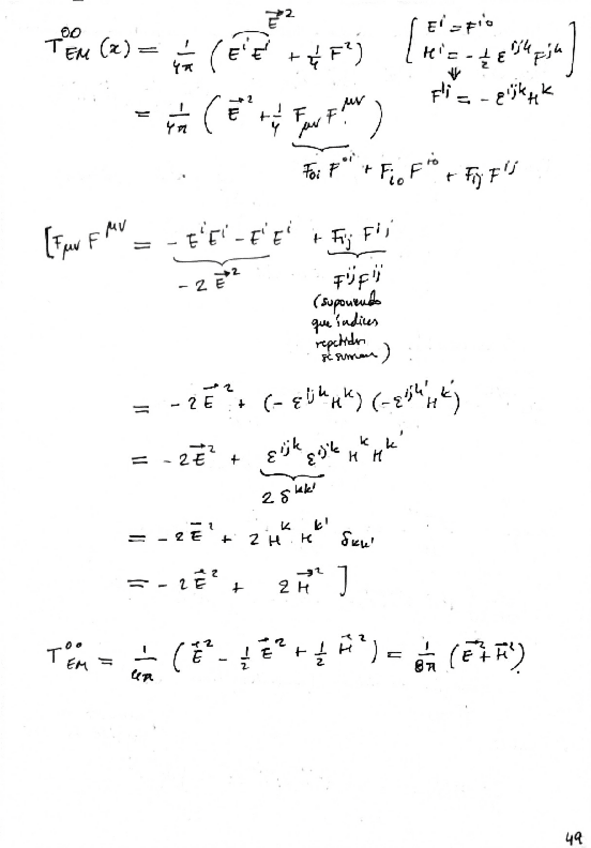 T^{00}_{EM}(x) = \frac{1}{4\pi} ( \overbrace{E^i E^i}^{\vec{E}^2} + \frac{1}{4} F^2 ) [ E^i = F^{i0}
H^i = -\frac{1}{2} ε^{ijk} F^{jk} ]
⇓
F^{ij} = - ε^{ijk} H^k
= \frac{1}{4\pi} ( \vec{E}^2 + \frac{1}{4} \underbrace{F_{μν} F^{μν}} )
F_{0i} F^{0i} + F_{i0} F^{i0} + F_{ij} F^{ij}
[ F_{μν} F^{μν} = \underbrace{- E^i E^i - E^i E^i} + \underbrace{F_{ij} F^{ij}}
- 2 \vec{E}^2 F^{ij} F^{ij}
(suponiendo
que índices
repetidos
se suman)
= - 2 \vec{E}^2 + (- ε^{ijk} H^k) (- ε^{ijk'} H^{k'})
= - 2 \vec{E}^2 + \underbrace{ε^{ijk} ε^{ijk}} H^k H^{k'}
2 δ^{kk'}
= - 2 \vec{E}^2 + 2 H^k H^{k'} δ_{kk'}
= - 2 \vec{E}^2 + 2 \vec{H}^2 ]
T^{00}_{EM} = \frac{1}{4\pi} ( \vec{E}^2 - \frac{1}{2} \vec{E}^2 + \frac{1}{2} \vec{H}^2 ) = \frac{1}{8\pi} ( \vec{E}^2 + \vec{H}^2 )
49